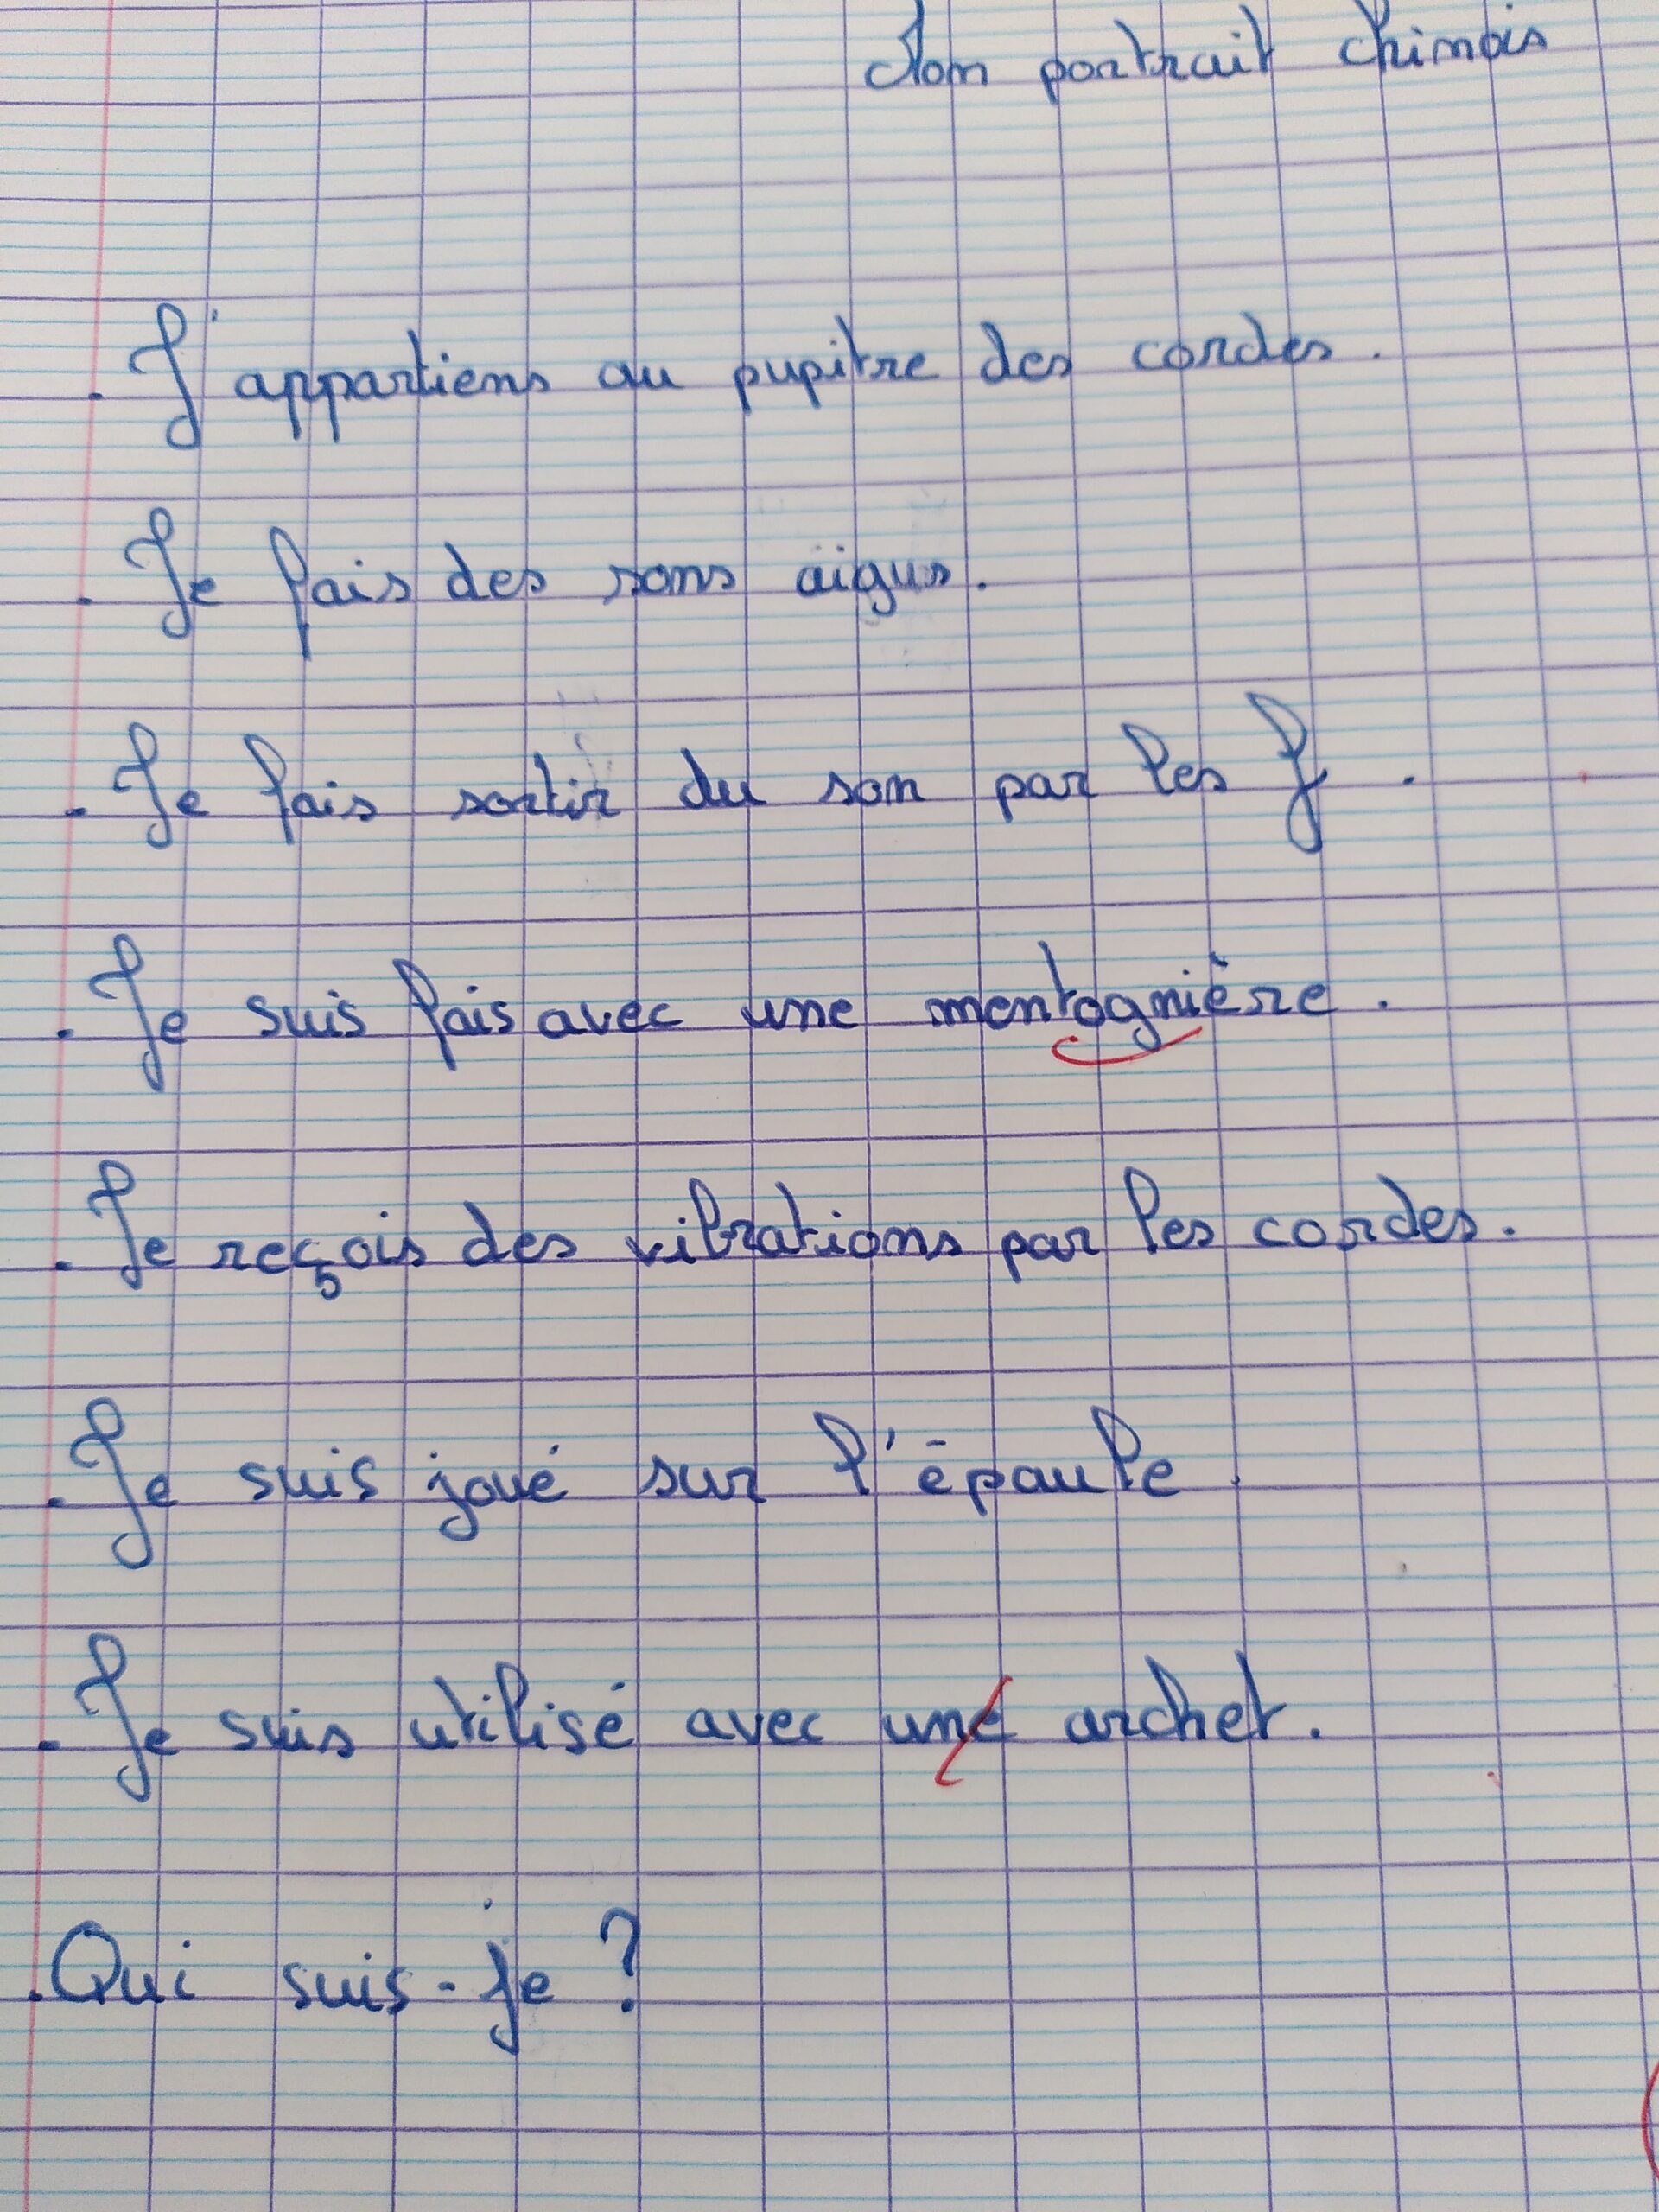 Mon portrait chinois
. J'appartiens au pupitre des cordes.
. Je fais des sons aigus.
- Je fais sortir du son par les f.
. Je suis fais avec une mentognière.
. Je reçois des vibrations par les cordes.
. Je suis joué sur l'épaule.
. Je suis utilisé avec une archet.
. Qui suis-je ?